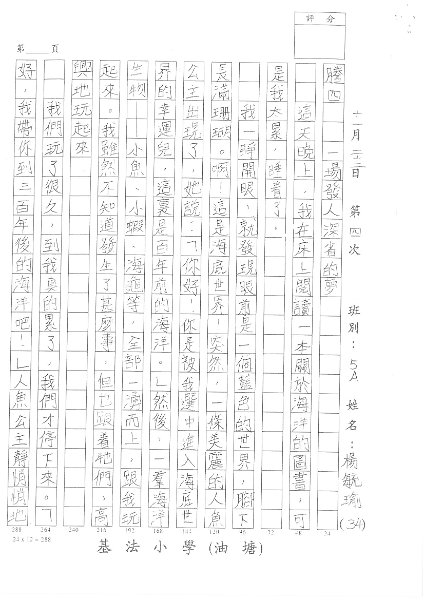 評分
十一月二十二日 第四次 班別：5A 姓名：楊毓瑜(34)
騰四 一場發人深省的夢
這天晚上，我在床上閱讀一本關於海洋的圖書，可
是我太累，睡着了。
我一睜開眼，就發現眼前是一個藍色的世界，腳下
長滿珊瑚。啊！這是海底世界！突然，一條美麗的人魚
公主出現了，她說：「你好！你是被我選中進入海底世
界的幸運兒，這裏是百年前的海洋。」然後，一羣海洋
生物——小魚、小蝦、海龜等，全部一湧而上，跟我玩
起來。我雖然不知道發生了甚麼事，但已跟着牠們，高
興地玩起來。
我們玩了很久，到我真的累了，我們才停下來。「
好，我帶你到二百年後的海洋吧！」人魚公主靜悄悄地
第 頁
288 264 240 216 192 168 144 120 96 72 48 24
24 x 12 = 288
基法小學(油塘)